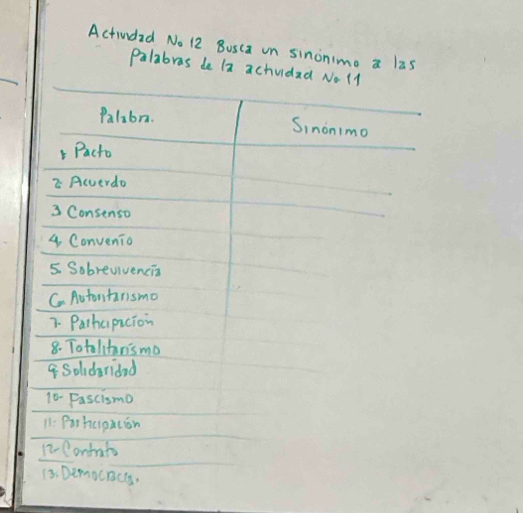 Actividad No 12 Busca un sinónimo a las
Palabras de la actividad No 11
Palabra. Sinónimo
1 Pacto
2 Acuerdo
3 Consenso
4 Convenio
5 Sobrevivencia
6 Autoritarismo
7- Participación
8. Totalitarismo
9 Solidaridad
10- Fascismo
11- Participación
12- Contrato
13. Democracia.